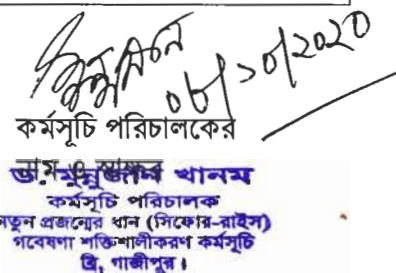 ০৮/১০/২০২০
কর্মসূচি পরিচালকের
নাম ও স্বাক্ষর
ড. মুন্নুজান খানম
কর্মসূচি পরিচালক
নতুন প্রজন্মের ধান (সিফোর-রাইস)
গবেষণা শক্তিশালীকরণ কর্মসূচি
ব্রি, গাজীপুর।